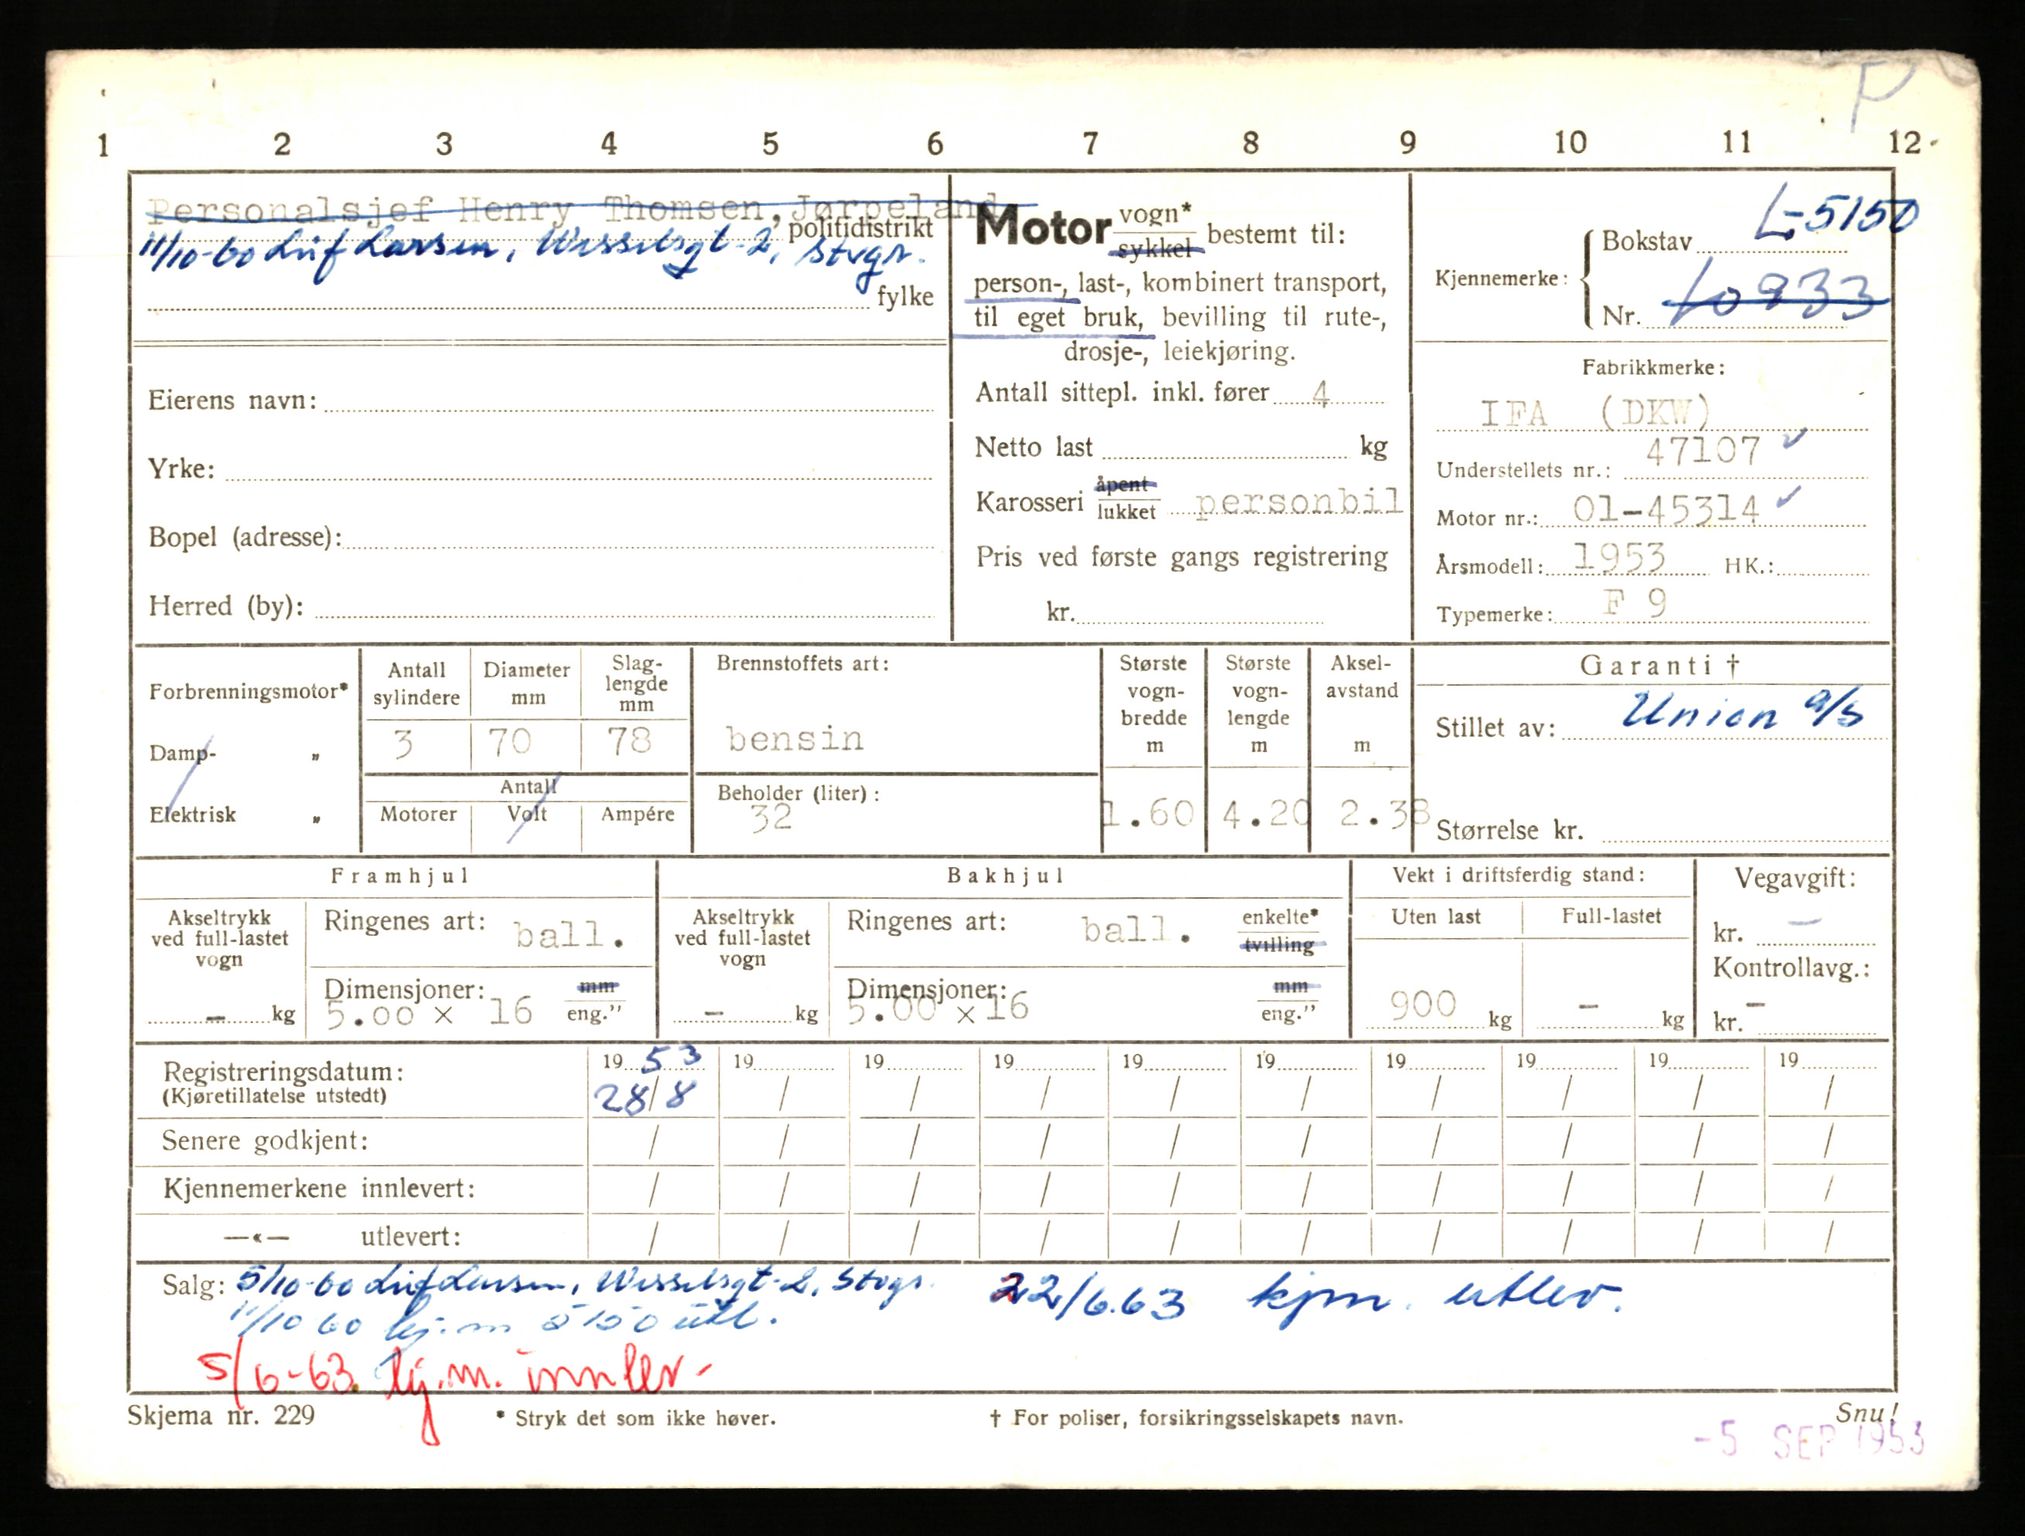 P
1 2 3 4 5 6 7 8 9 10 11 12
Personalsjef Henry Thomsen, Jørpeland
politidistrikt
11/10-60 Leif Larsen, Wesselsgt-2, Stvgr.
fylke
Eierens navn:
Yrke:
Bopel (adresse):
Herred (by):
Motor vogn* sykkel bestemt til:
person-, last-, kombinert transport,
til eget bruk, bevilling til rute-,
drosje-, leiekjøring.
Antall sittepl. inkl. fører 4
Netto last kg
Karosseri åpent lukket personbil
Pris ved første gangs registrering
kr.
Kjennemerke: Bokstav L-5150
Nr. 10933
Fabrikkmerke:
IFA (DKW)
Understellets nr.: 47107
Motor nr.: 01-45314
Årsmodell: 1953 HK.:
Typemerke: F 9
Forbrenningsmotor*
Damp- „
Elektrisk „
Antall sylindere
Diameter mm
Slag- lengde mm
3 70 78
Antall
Motorer Volt Ampére
Brennstoffets art:
bensin
Beholder (liter):
32
Største vogn- bredde m
1.60
Største vogn- lengde m
4.20
Aksel- avstand m
2.38
Garanti †
Stillet av: Union a/s
Størrelse kr.
Framhjul
Akseltrykk ved full-lastet vogn
- kg
Ringenes art: ball.
Dimensjoner: mm
5.00 x 16 eng."
Bakhjul
Akseltrykk ved full-lastet vogn
- kg
Ringenes art: ball. enkelte* tvilling
Dimensjoner: mm
5.00 x 16 eng."
Vekt i driftsferdig stand:
Uten last Full-lastet
900 kg - kg
Vegavgift:
kr. -
Kontrollavg.:
kr. -
Registreringsdatum: 19 53 19 19 19 19 19 19 19 19 19
(Kjøretillatelse utstedt) 28/8 / / / / / / / / /
Senere godkjent: / / / / / / / / / /
Kjennemerkene innlevert: / / / / / / / / / /
—«— utlevert: / / / / / / / / / /
Salg: 5/10-60 Leif Larsen, Wesselsgt-2, Stvgr. 22/6.63 kjm. utlev.
11/10 60 kj.m 5150 utl.
5/6-63. kj.m. innlev.
Skjema nr. 229 * Stryk det som ikke høver. † For poliser, forsikringsselskapets navn. Snu!
-5 SEP 1953